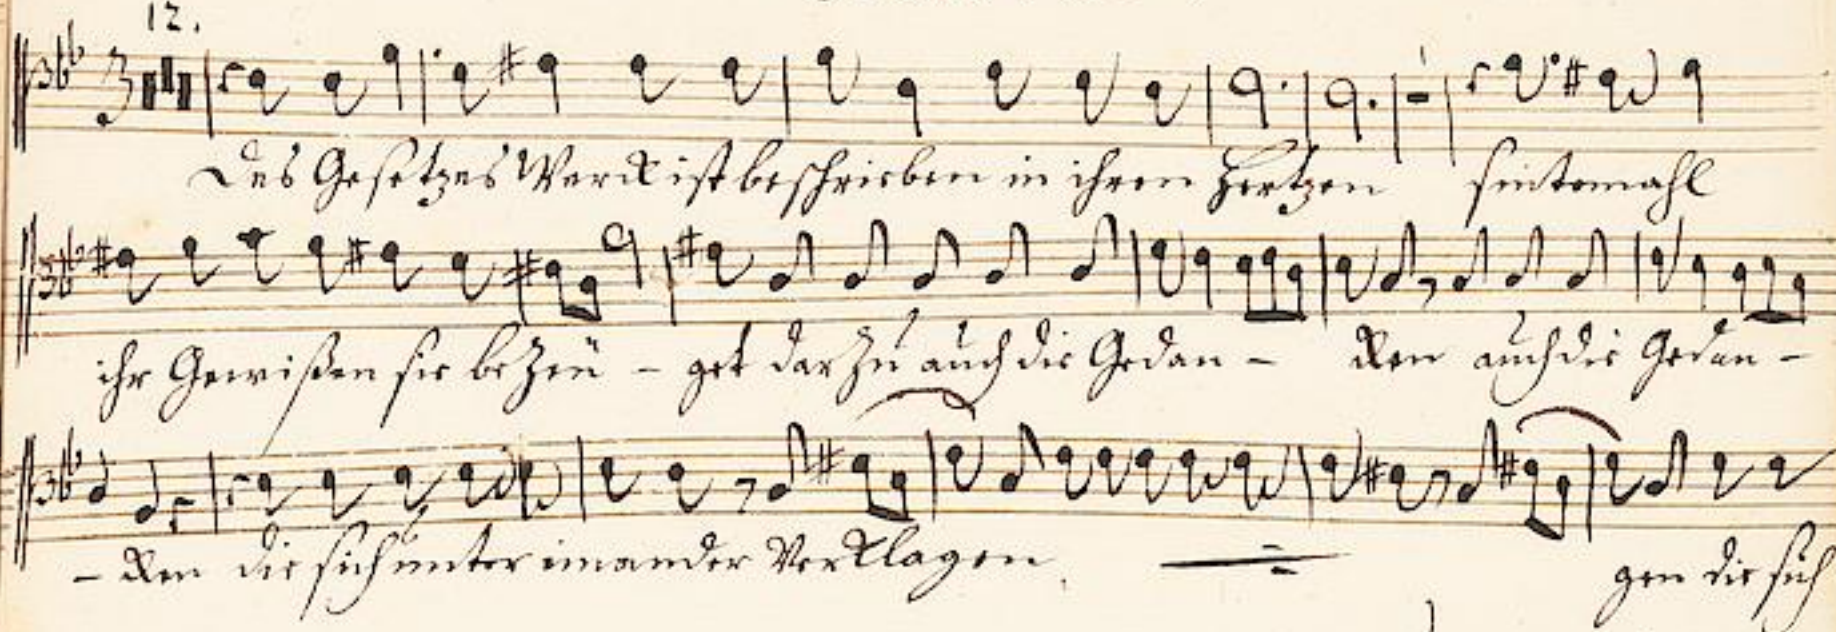 12.
Des Gesetzes Werck ist beschrieben in ihren Hertzen sintemahl
ihr Gewißen sie bezeu - get darzu auch die Gedan - cken auch die Gedan -
- cken die sich unter einander verklagen gen die sich